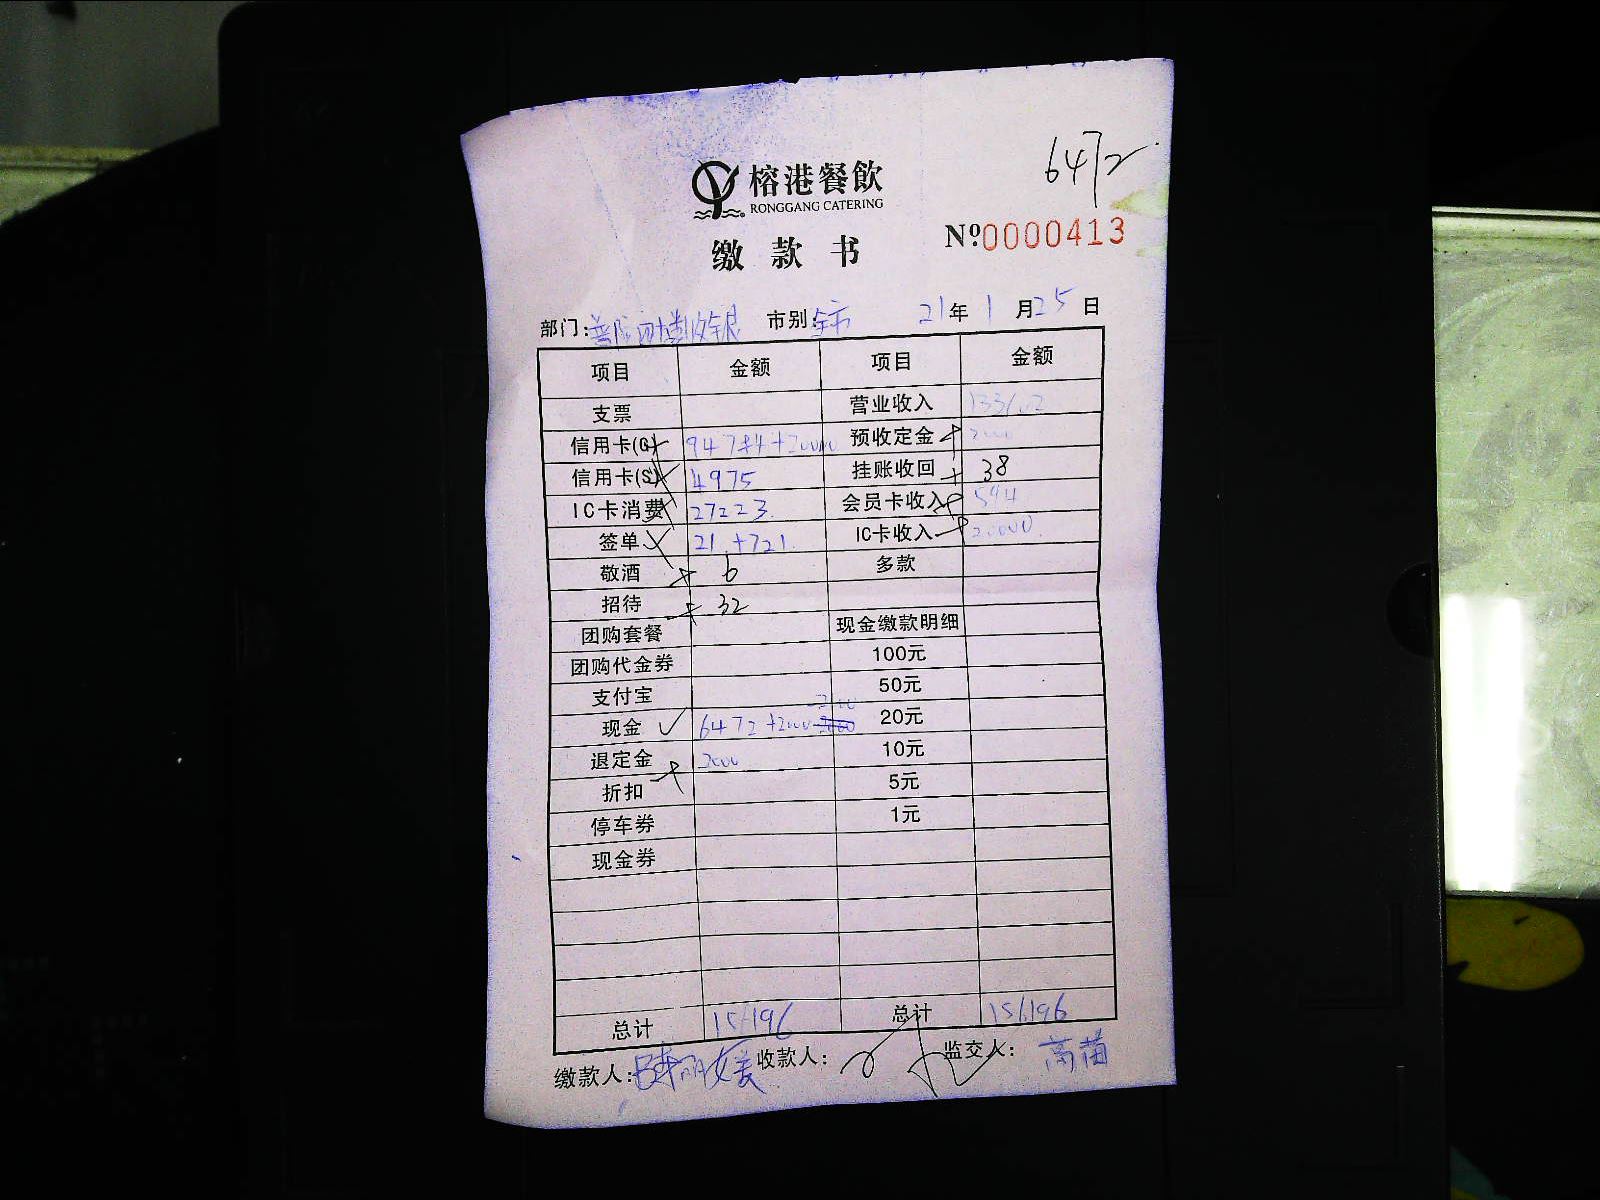 6472
榕港餐飲
RONGGANG CATERING
缴款书
Nº0000413
部门: 收银 市别: 全市 21年1月25日
项目 金额 项目 金额
支票 营业收入
信用卡(G) 94784+20000 预收定金 2000
信用卡(S) 4975 挂账收回 38
IC卡消费 27223 会员卡收入 594
签单 21+721 IC卡收入 20000
敬酒 6 多款
招待 32
团购套餐 现金缴款明细
团购代金券 100元
支付宝 50元
现金 6472+2000 20元
退定金 2000 10元
折扣 5元
停车券 1元
现金券
总计 156196 总计 156196
缴款人: 收款人: 监交人: